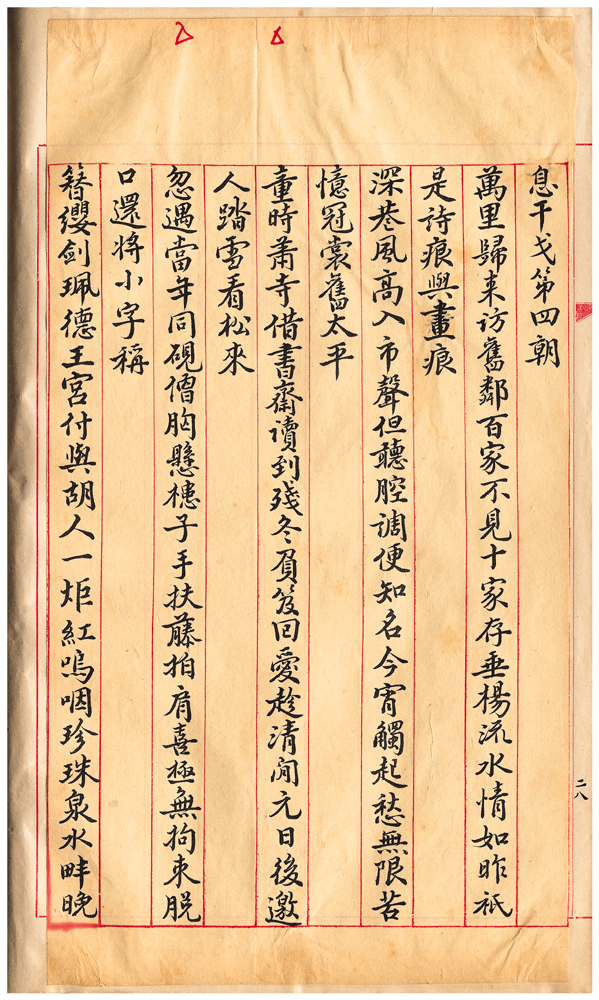 息干戈第四朝
萬里歸来访舊鄰百家不見十家存垂楊流水情如昨祇
是詩痕與畫痕
深巷風高入市聲但聽腔調便知名今宵觸起愁無限苦
憶冠裳舊太平
童時蕭寺借書齋讀到殘冬負笈回愛趁清閒元日後邀
人踏雪看松來
忽遇當年同硯僧胸懸槵子手扶藤拍肩喜極無拘束脱
口還將小字稱
簪纓劍珮德王宮付與胡人一炬紅嗚咽珍珠泉水畔晚
二八